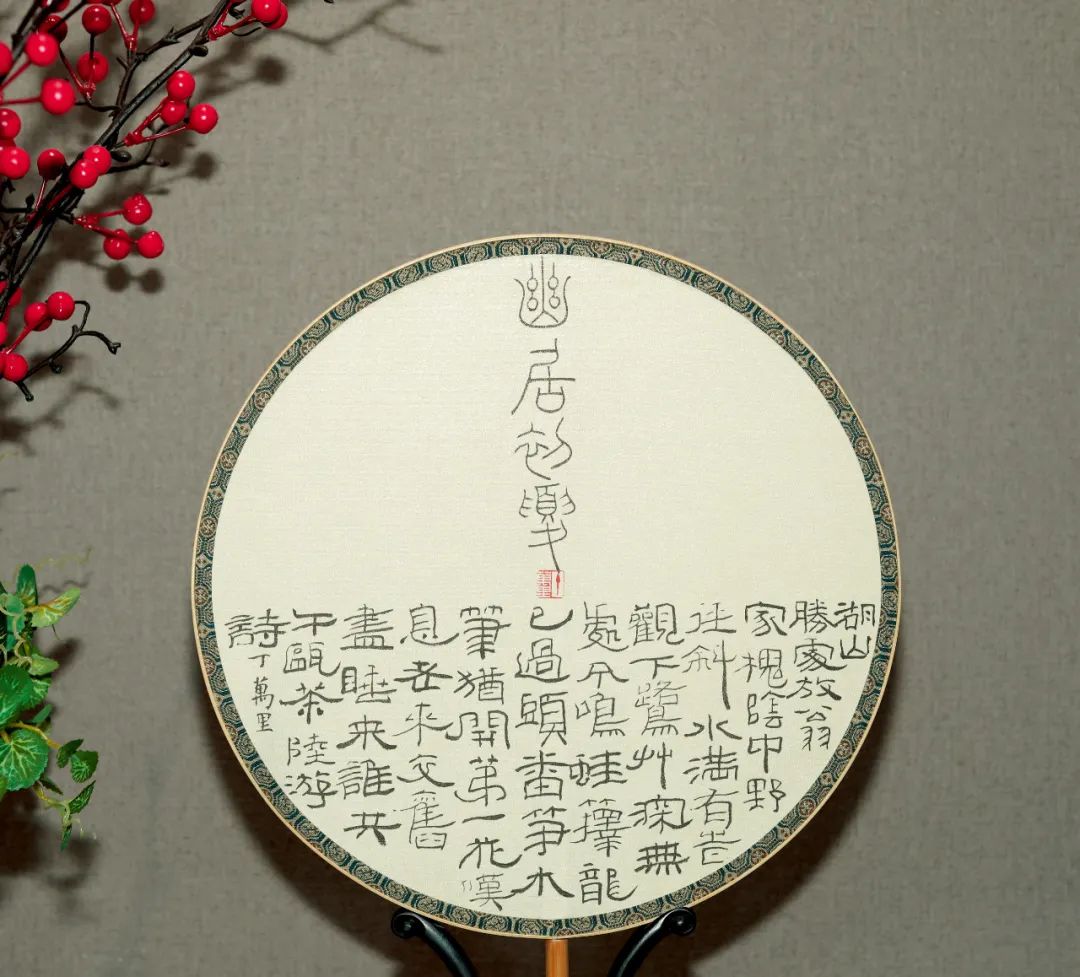 幽居初夏
湖山
勝處放翁
家槐陰中野
徑斜水滿有旹
觀下鷺艸深無
處不鳴蛙籜龍
已過頭番笋木
筆猶開第一花嘆
息老來交舊
盡睡來誰共
午甌茶 陸游
詩 丁萬里